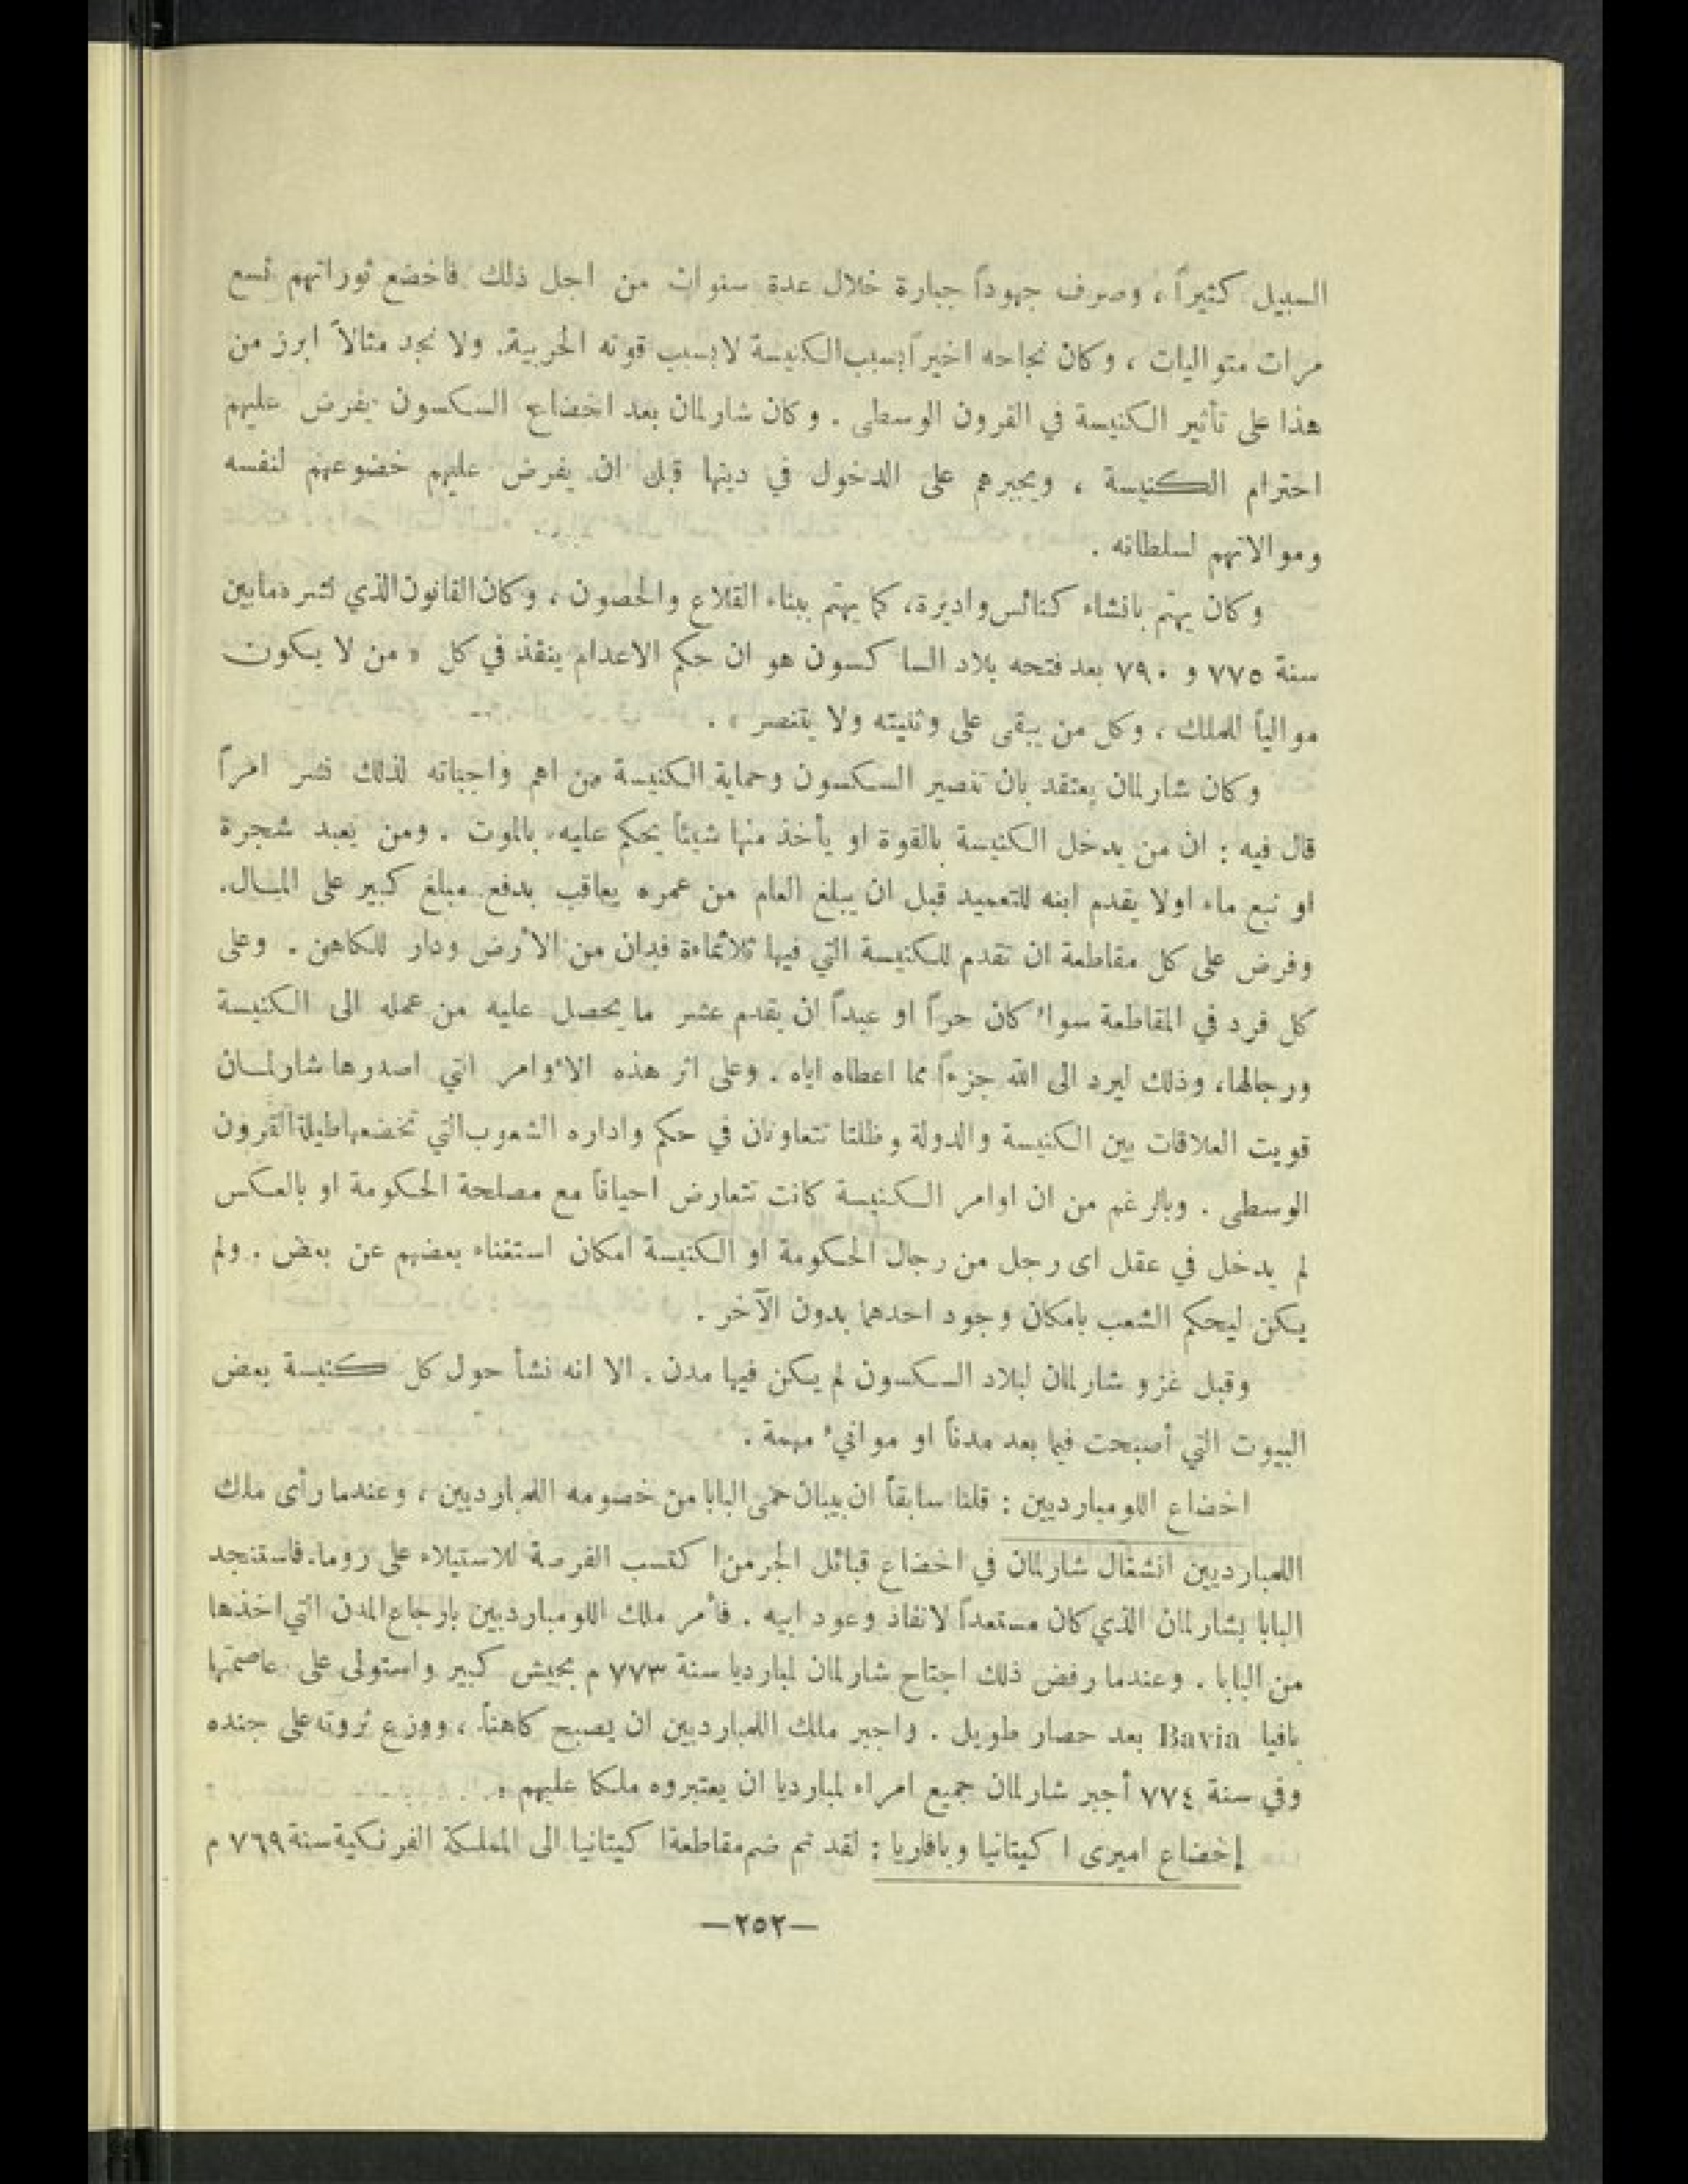 السبيل كثيراً ، وصرف جهوداً جبارة خلال عدة سنوات من اجل ذلك فاخضع ثوراتهم تسع
مرات متواليات ، وكان نجاحه اخيراً بسبب الكنيسة لا بسبب قوته الحربية. ولا نجد مثالاً ابرز من
هذا على تأثير الكنيسة في القرون الوسطى . وكان شارلمان بعد اخضاع السكسون يفرض عليهم
احترام الكنيسة ، ويجبرهم على الدخول في دينها قبل ان يفرض عليهم خضوعهم لنفسه
وموالاتهم لسلطانه .
وكان يهتم بانشاء كنائس واديرة، كما يهتم ببناء القلاع والحصون ، وكان القانون الذي نشره مابين
سنة ٧٧٥ و ٧٩٠ بعد فتحه بلاد السا كسون هو ان حكم الاعدام ينفذ في كل « من لا يكون
موالياً للملك ، وكل من يبقى على وثنيته ولا يتنصر » .
وكان شارلمان يعتقد بان تنصير السكسون وحماية الكنيسة من اهم واجباته لذلك نشر امراً
قال فيه : ان من يدخل الكنيسة بالقوة او يأخذ منها شيئاً يحكم عليه بالموت . ومن يعبد شجرة
او نبع ماء اولا يقدم ابنه للتعميد قبل ان يبلغ العام من عمره يعاقب بدفع مبلغ كبير على المال.
وفرض على كل مقاطعة ان تقدم للكنيسة التي فيها ثلاثماءة فدان من الأرض ودار للكاهن . وعلى
كل فرد في المقاطعة سواء كان حراً او عبداً ان يقدم عشر ما يحصل عليه من عمله الى الكنيسة
ورجالها، وذلك ليرد الى الله جزءاً مما اعطاه اياه . وعلى اثر هذه الأوامر التي اصدرها شارلمان
قويت العلاقات بين الكنيسة والدولة وظلتا تتعاونان في حكم واداره الشعوب التي تخضعها طيلة القرون
الوسطى . وبالرغم من ان اوامر الكنيسة كانت تتعارض احياناً مع مصلحة الحكومة او بالعكس
لم يدخل في عقل اى رجل من رجال الحكومة او الكنيسة امكان استغناء بعضهم عن بعض . ولم
يكن ليحكم الشعب بامكان وجود احدهما بدون الآخر .
وقبل غزو شارلمان لبلاد السكسون لم يكن فيها مدن . الا انه نشأ حول كل كنيسة بعض
البيوت التي أصبحت فيما بعد مدناً او موانيء مهمة .
اخضاع اللومبارديين : قلنا سابقاً ان بيبان حمى البابا من خصومه اللمبارديين ، وعندما رأى ملك
اللمبارديين انشغال شارلمان في اخضاع قبائل الجرمن ا كتسب الفرصة للاستيلاء على روما. فاستنجد
البابا بشارلمان الذي كان مستعداً لانفاذ وعود ابيه . فأمر ملك اللومبارديين بارجاع المدن التي اخذها
من البابا . وعندما رفض ذلك اجتاح شارلمان لمبارديا سنة ٧٧٣ م بجيش كبير واستولى على عاصمتها
بافيا Bavia بعد حصار طويل . واجبر ملك اللمبارديين ان يصبح كاهناً ، ووزع ثروته على جنده
وفي سنة ٧٧٤ أجبر شارلمان جميع امراء لمبارديا ان يعتبروه ملكا عليهم .
إخضاع اميرى ا كيتانيا وبافاريا : لقد تم ضم مقاطعة ا كيتانيا الى المملكة الفرنكية سنة ٧٦٩ م
—٢٥٢—